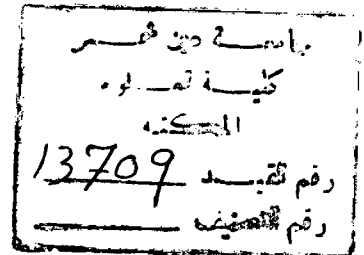 جامعة عين شمس
كلية العلوم
المكتبه
رقم القيد 13709
رقم التصنيف